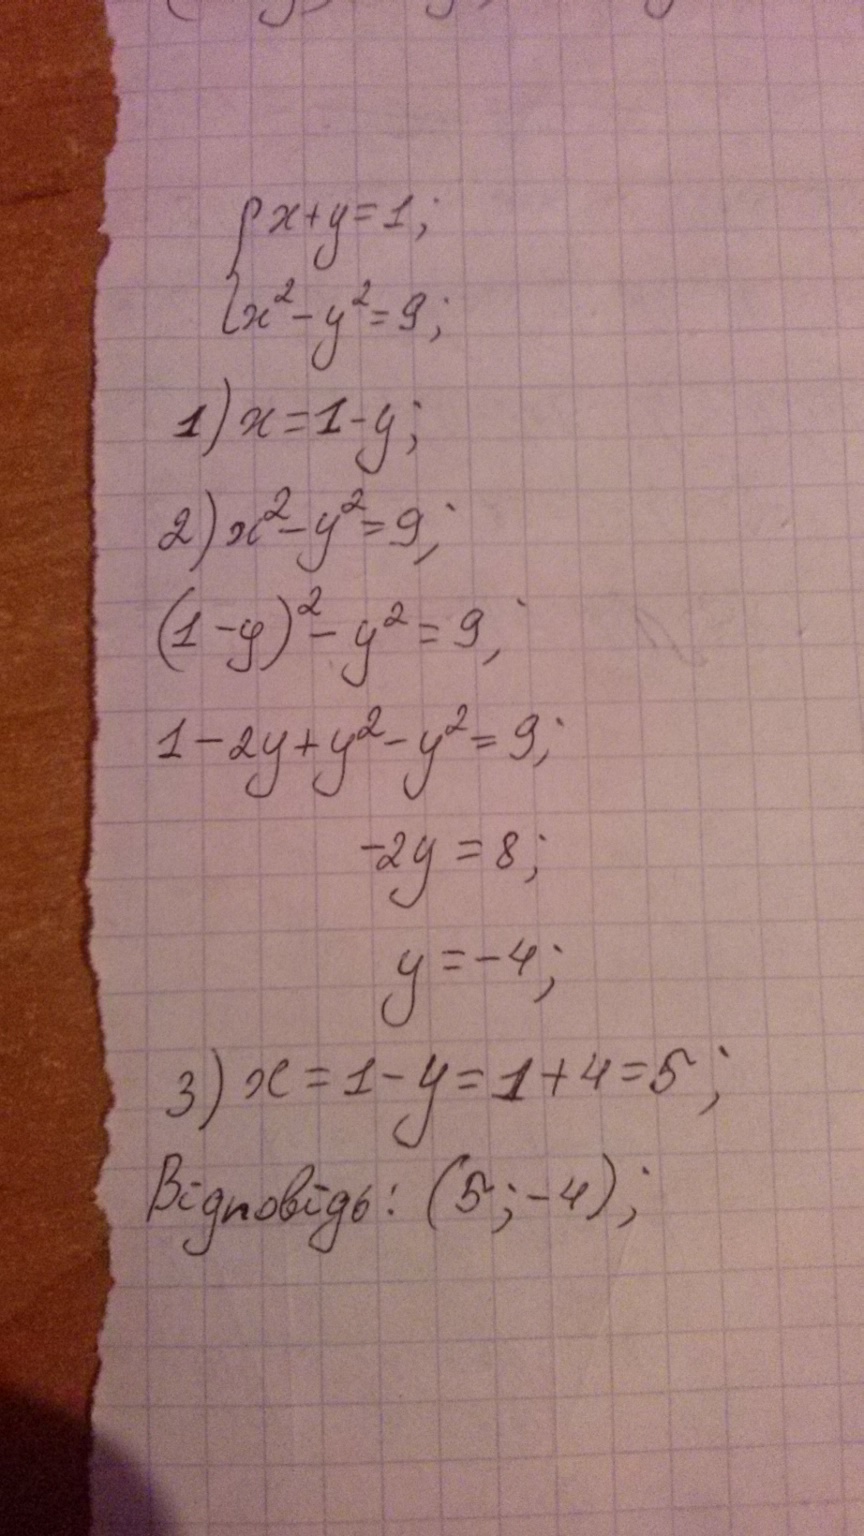 {x+y=1;
x²-y²=9;
1) x=1-y;
2) x²-y²=9;
(1-y)²-y²=9;
1-2y+y²-y²=9;
-2y=8;
y=-4;
3) x=1-y=1+4=5;
Відповідь: (5;-4);